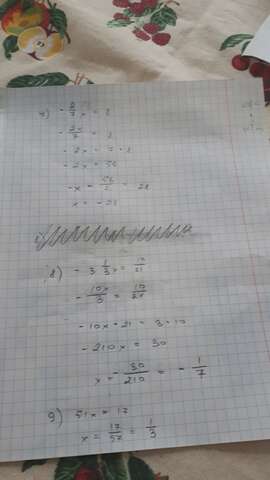 7) - 2/7 x = 8
- 2x/7 = 8
- 2x = 7 · 8
- 2x = 56
- x = 56/2 = 28
x = - 28
8) - 3 1/3 x = 10/21
- 10x/3 = 10/21
- 10x · 21 = 3 · 10
- 210x = 30
x = - 30/210 = - 1/7
9) 51x = 17
x = 17/57 = 1/3